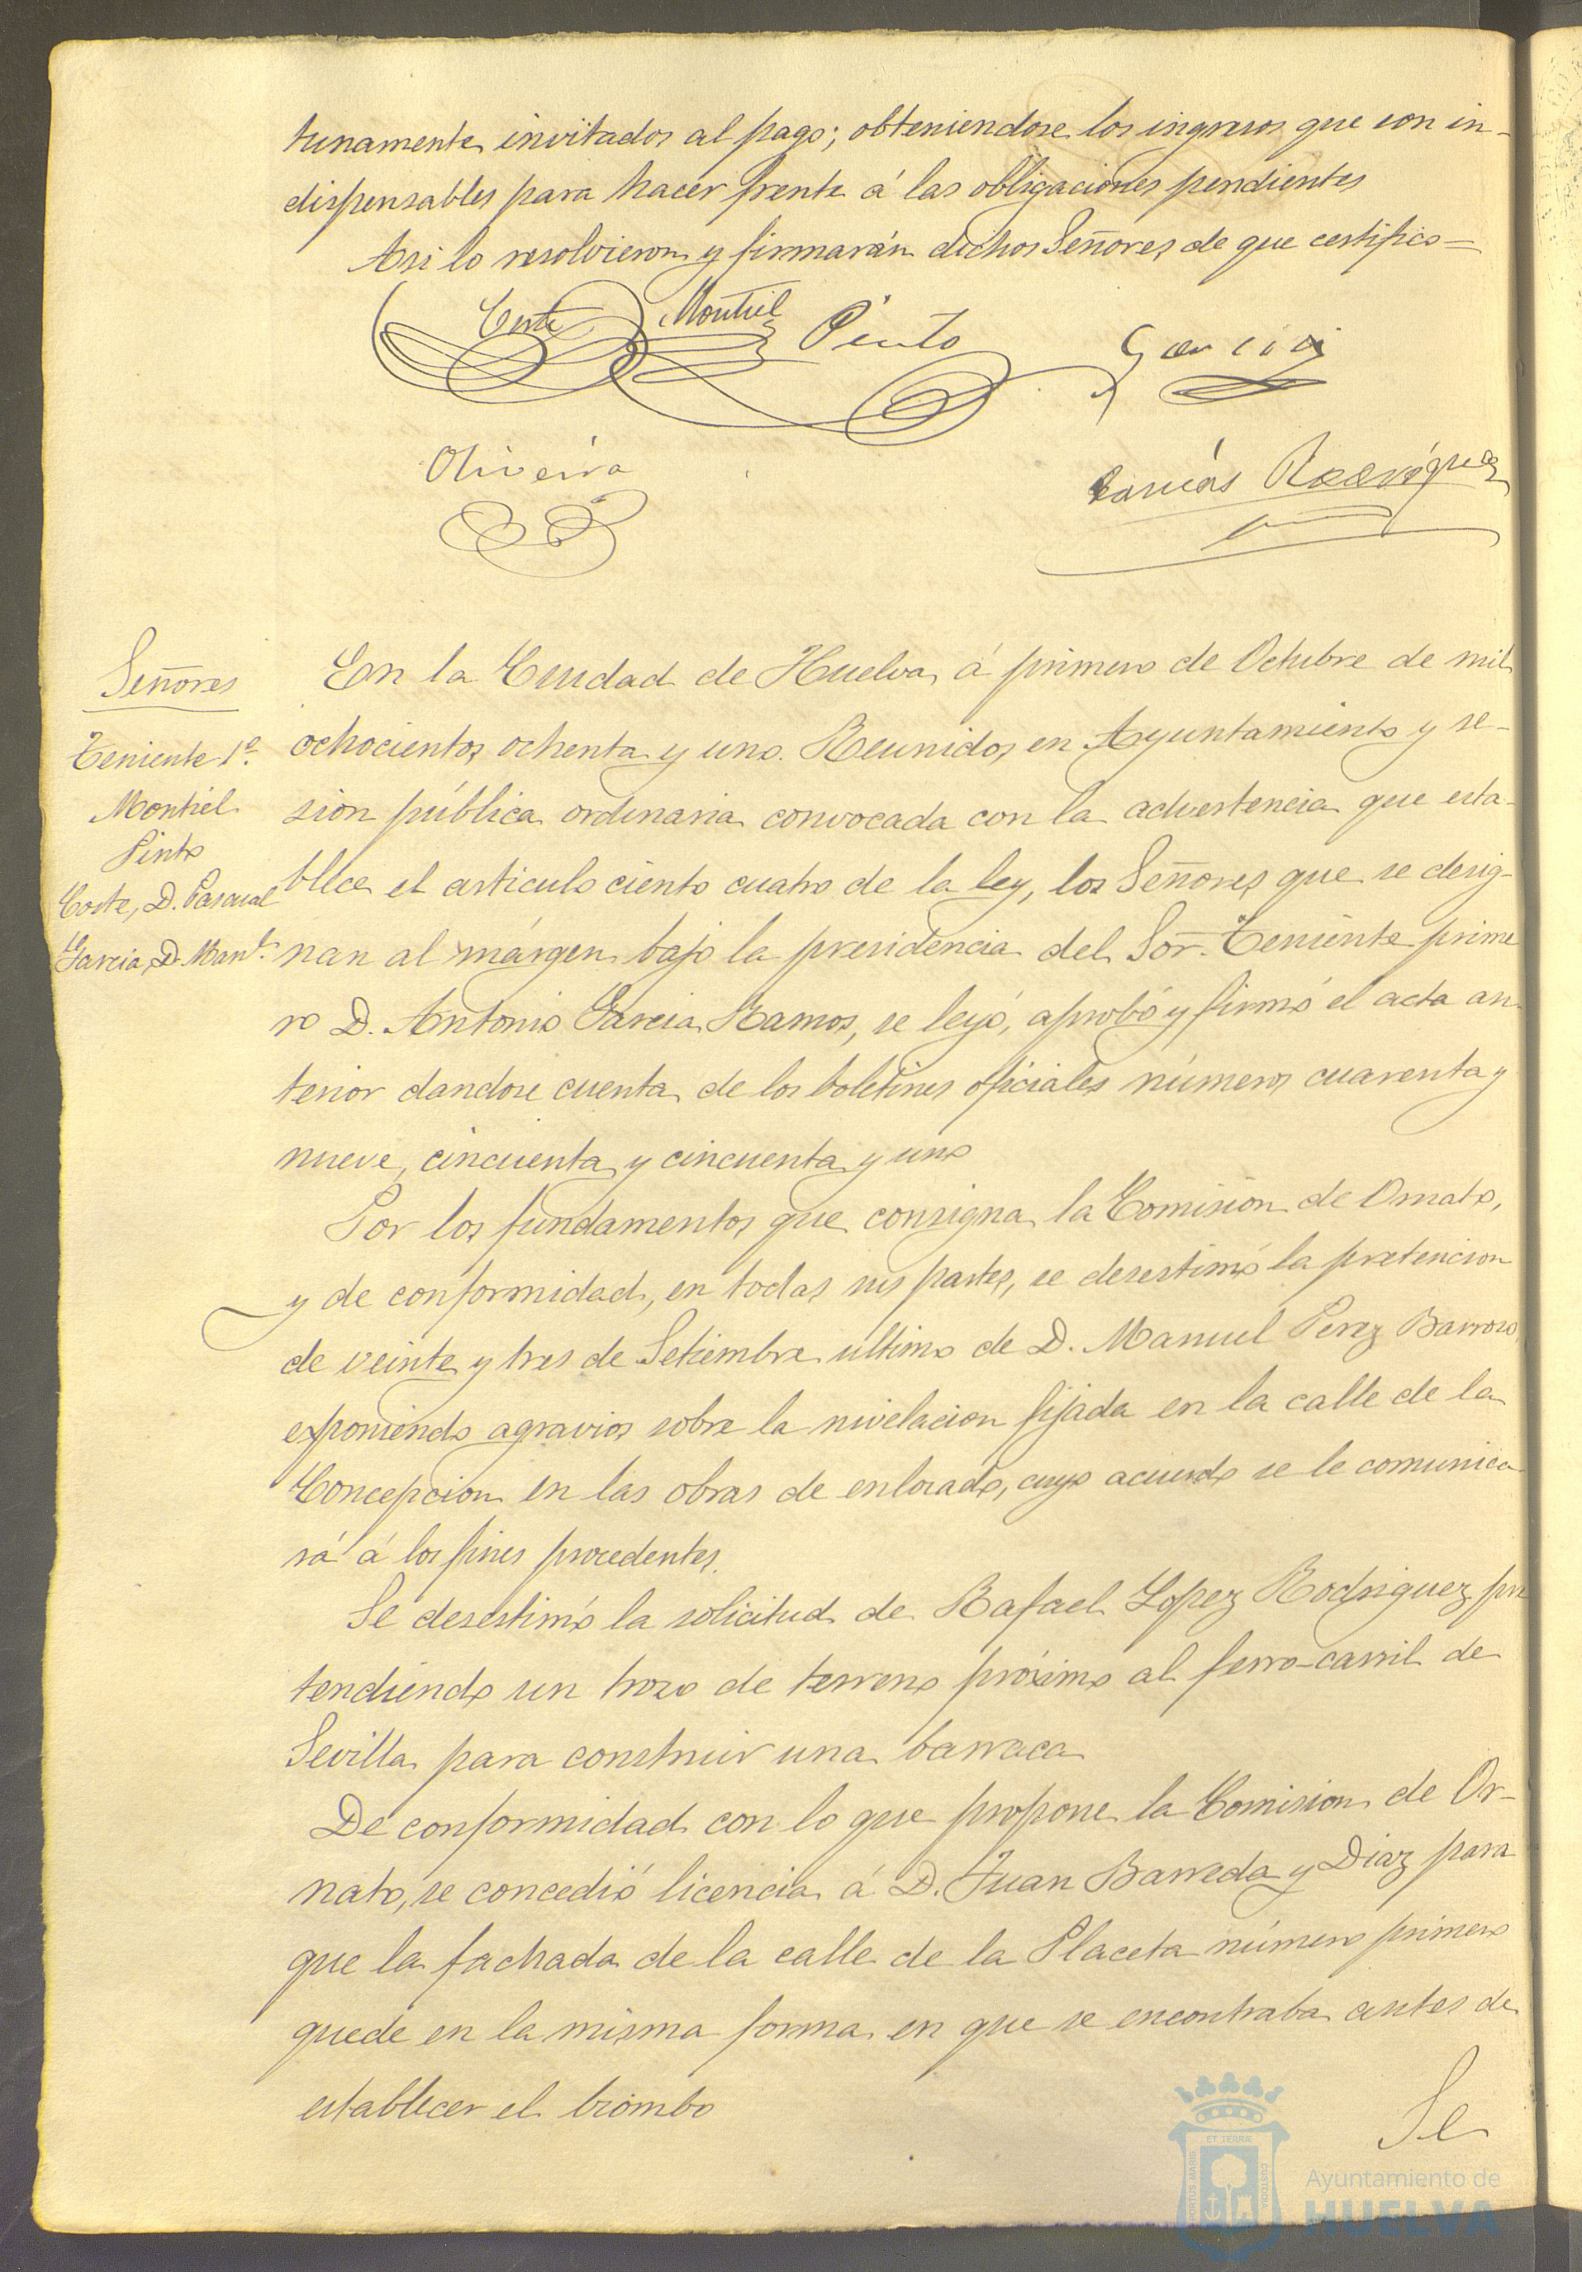 tunamente invitados al pago; obteniendose los ingresos que son in-
dispensables para hacer frente á las obligaciones pendientes
Asi lo resolvieron y firmarán dichos Señores de que certifico=
Corte Montiel Pinto Garcia
Oliveira Rodriguez
Señores
Teniente 1º
Montiel
Pinto
Corte, D. Pascual
Garcia, D. Manl.
En la Ciudad de Huelva, á primero de Octubre de mil
ochocientos ochenta y uno. Reunidos en Ayuntamiento y se-
sion pública ordinaria convocada con la advertencia que esta-
blece el articulo ciento cuatro de la ley, los Señores que se desig-
nan al márgen bajo la presidencia del Sor. Teniente prime
ro D. Antonio Garcia Ramos, se leyó, aprobó y firmó el acta an-
terior dandose cuenta de los boletines oficiales números cuarenta y
nueve, cincuenta y cincuenta y uno
Por los fundamentos que consigna la Comision de Ornato,
y de conformidad, en todas sus partes, se desestimó la pretencion
de veinte y tres de Setiembre ultimo de D. Manuel Perez Barroso,
exponiendo agravios sobre la nivelacion fijada en la calle de la
Concepcion en las obras de enlosado, cuyo acuerdo se le comunica
rá á los fines procedentes.
Se desestimó la solicitud de Rafael Lopez Rodriguez pre
tendiendo un trozo de terreno próximo al ferro-carril de
Sevilla para construir una barraca
De conformidad con lo que propone la Comision de Or-
nato, se concedió licencia á D. Juan Barreda y Diaz para
que la fachada de la calle de la Placeta número primero
quede en la misma forma en que se encontraba antes de
establecer el biombo
Se
PORTUS MARIS ET TERRÆ CUSTODIA
Ayuntamiento de
HUELVA